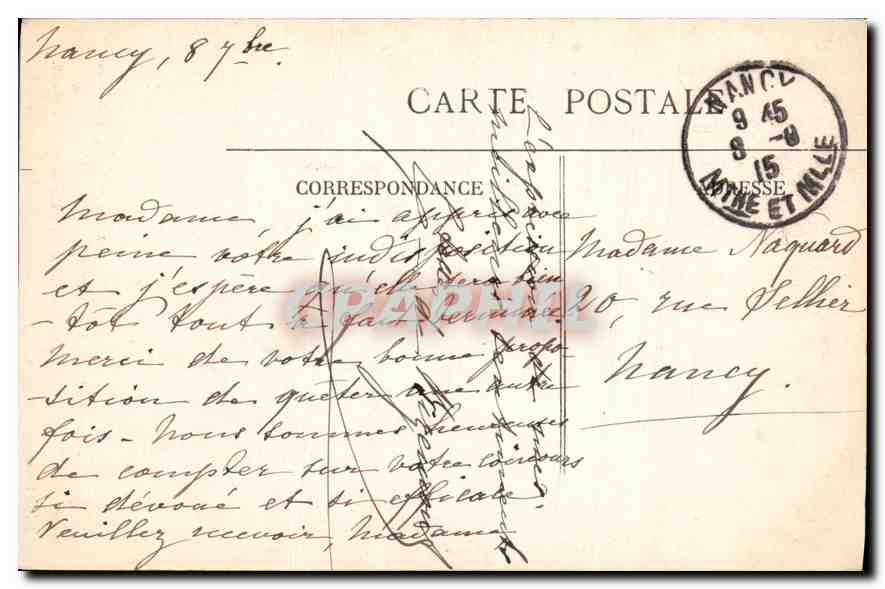 Nancy, 8 7bre
CARTE POSTALE
NANCY
9 45
8 -9
15
MTHE ET MLLE
CORRESPONDANCE
ADRESSE
Madame j'ai appris avec
peine votre indisposition
et j'espère qu'elle sera bien
-tôt tout à fait terminée
Merci de votre bonne propo
sition de quêter une autre
fois - Nous sommes heureuses
de compter sur votre concours
si dévoué et si efficace
Veuillez recevoir, Madame
l'expression de mes
meilleurs sentiments
Madame Naquard
20, rue Sellier
Nancy.
CPAPHIL